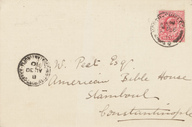 W. Peet Esq.
American Bible House
Stamboul
Constantinople